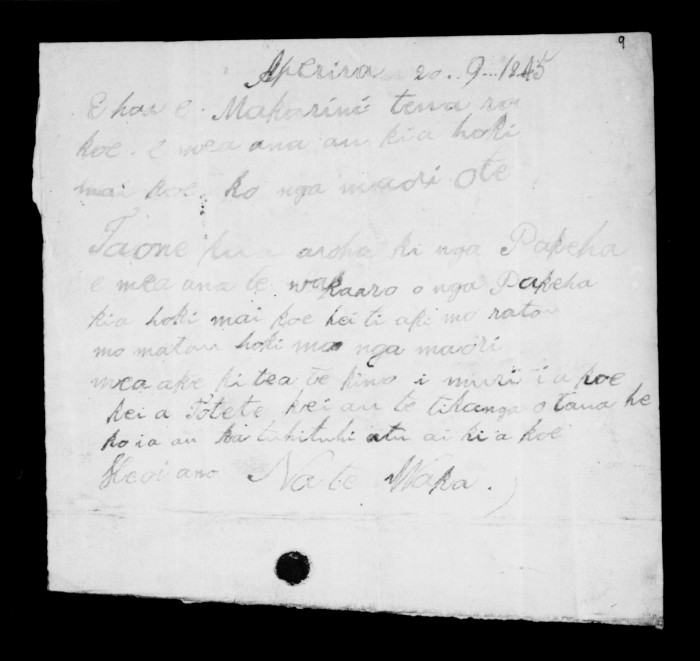 9
Aperira 20..9...1845
E hoa e. Makarini tena ra
koe. e mea ana au kia hoki
mai koe. ko nga maori o te
Taone kua aroha ki nga Pakeha
e mea ana te wakaaro o nga Pakeha
kia hoki mai koe hei tiaki mo ratou
mo matou hoki mo nga maori
mea ake kitea te kino i muri i a koe
kei a Totete kei au te tikanga o taua he
ko ia au ka tuhituhi atu ai ki a koe
Heoi ano Na te Waka.